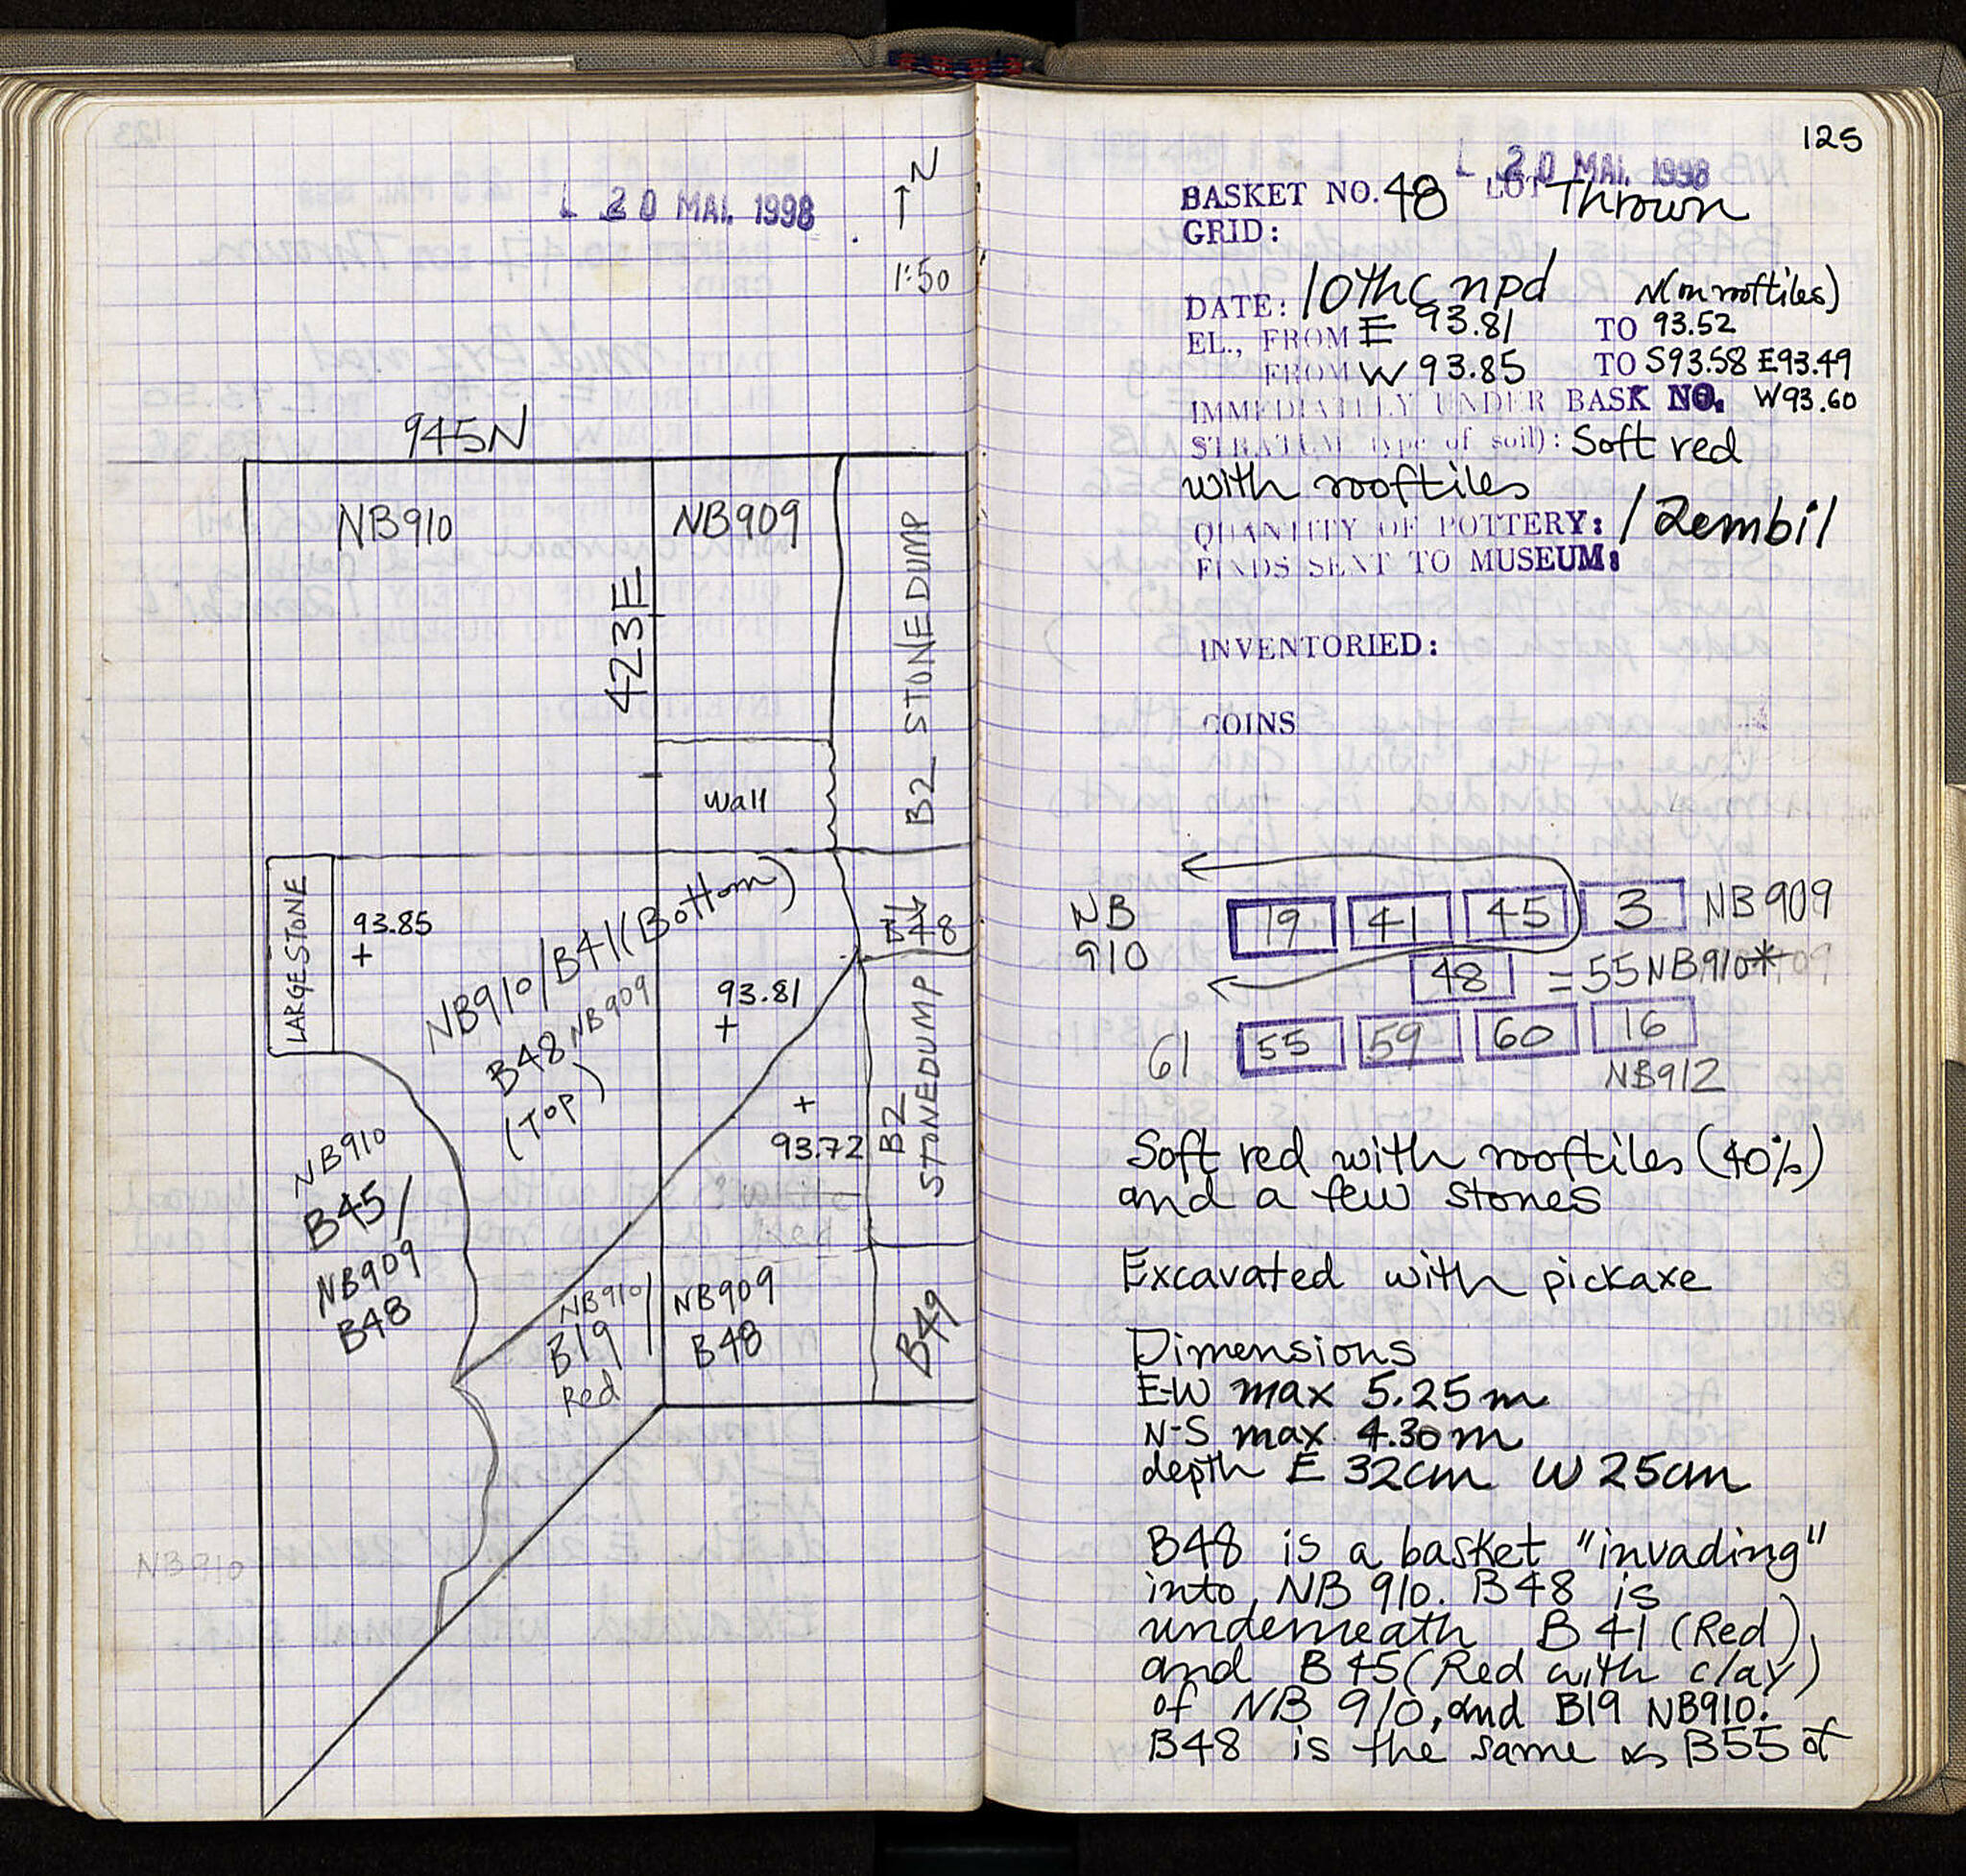 L 20 MAI 1998
N
1:50
945N
NB910
NB909
423E
B2 STONEDUMP
Wall
LARGE STONE
93.85
+
NB910/B41(Bottom)
B48 NB909
(TOP)
93.81
+
B48
+
93.72
B2
STONEDUMP
NB910
B45/
NB909
B48
NB910/
B19
Red
NB909
B48
B49
NB910
125
L 20 MAI 1998
BASKET NO. 48 LOT Thrown
GRID:
DATE: 10thc npd N(on rooftiles)
EL., FROM E 93.81 TO 93.52
FROM W 93.85 TO S93.58 E93.49
IMMEDIATELY UNDER BASK NO. W93.60
STRATUM type of soil): Soft red
with rooftiles
QUANTITY OF POTTERY: 1 Zembil
FINDS SENT TO MUSEUM:
INVENTORIED:
COINS
NB 19 41 45 3 NB909
910 48 = 55NB910*
61 55 59 60 16
NB912
Soft red with rooftiles (40%)
and a few stones
Excavated with pickaxe
Dimensions
E-W max 5.25m
N-S max 4.30m
depth E 32cm W 25cm
B48 is a basket "invading"
into NB 910. B48 is
underneath B41 (Red),
and B45 (Red with clay)
of NB 910, and B19 NB910.
B48 is the same as B55 of